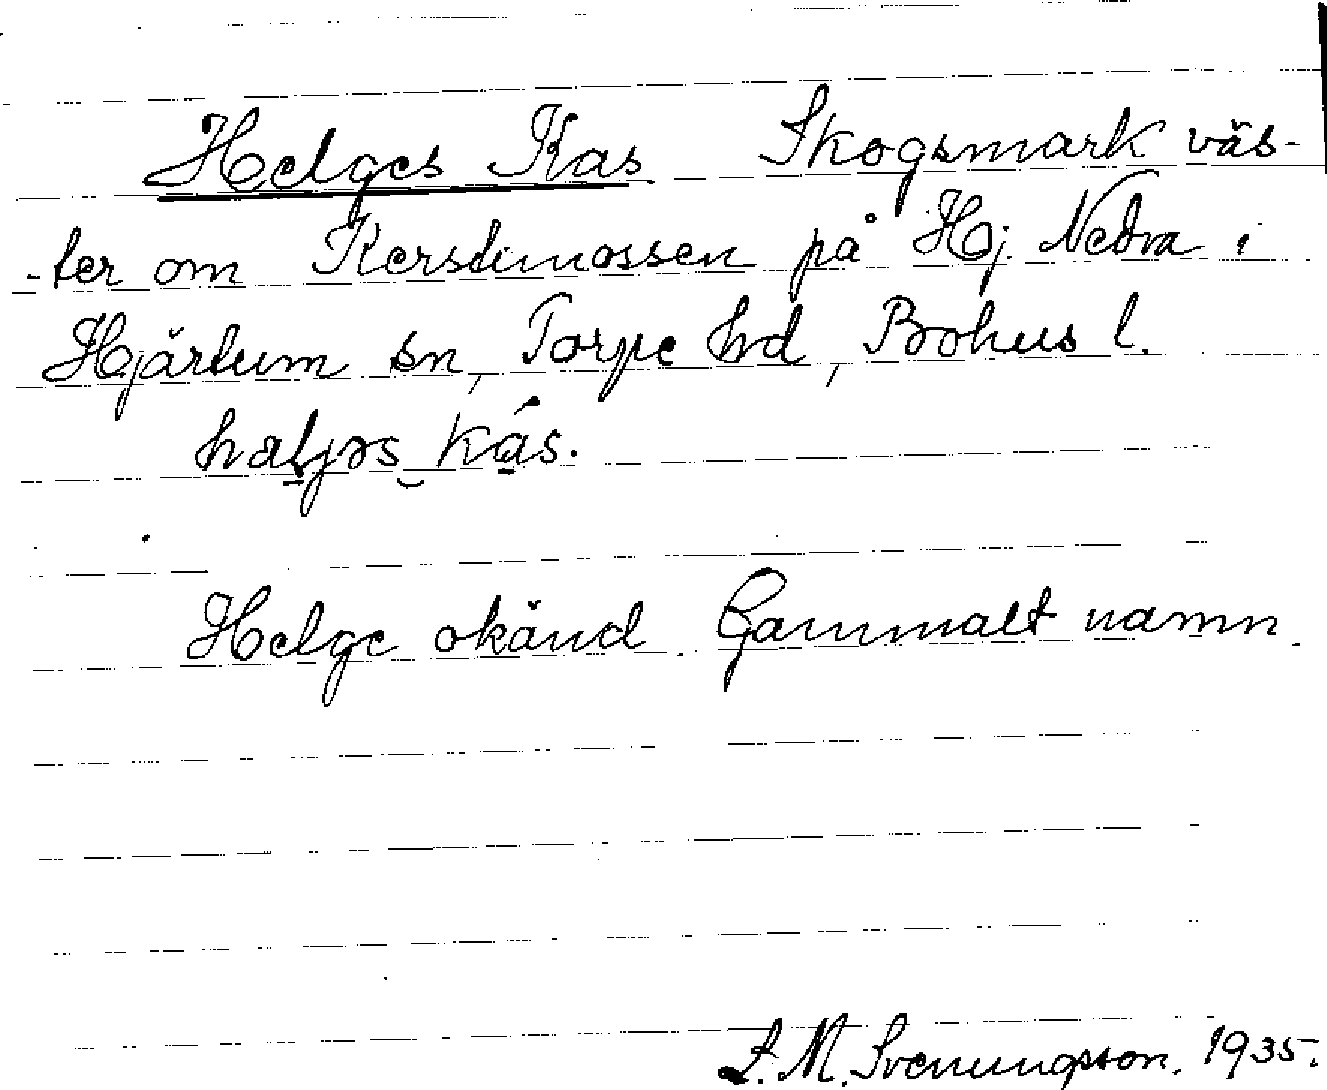 Helges Kas Skogsmark väs-
-ter om Kerstimossen på Hj. Nedra i
Hjärtum sn, Torpe hd, Bohus l.
hal̠jəs‿ká̠s.
Helge okänd. Gammalt namn.
L. M. Svenungsson. 1935.